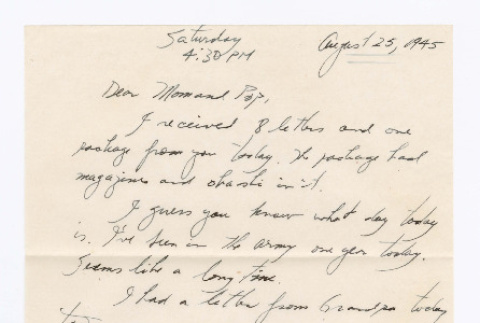 Saturday August 25, 1945
4:30 PM
Dear Mom and Pop,
I received 8 letters and one
package from you today. The package had
magazines and ohashi in it.
I guess you know what day today
is. I've been in the army one year today.
Seems like a long time.
I had a letter from Grandpa today